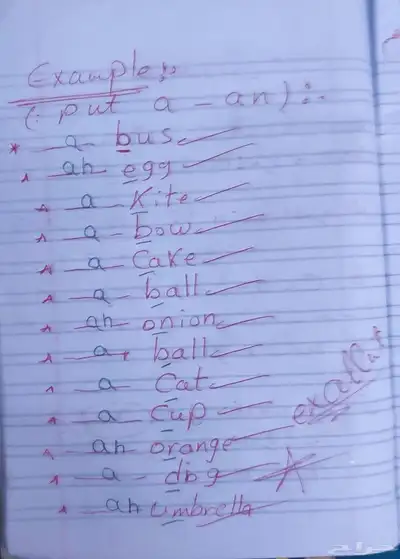 Example:
(: put a - an) :.
* a bus
an egg
a Kite
a bow
a Cake
a ball
an onion
a ball
a Cat
a Cup
an orange
a dog
an umbrella